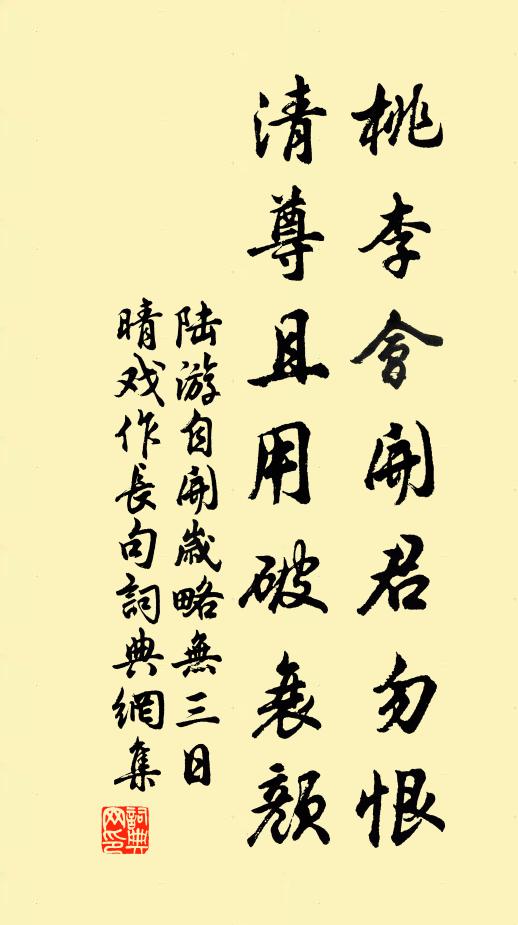 桃李會開君勿恨
清尊且用破衰顔
陆游自開歲略無三日
晴戏作長句詞典網集
詞典
网印